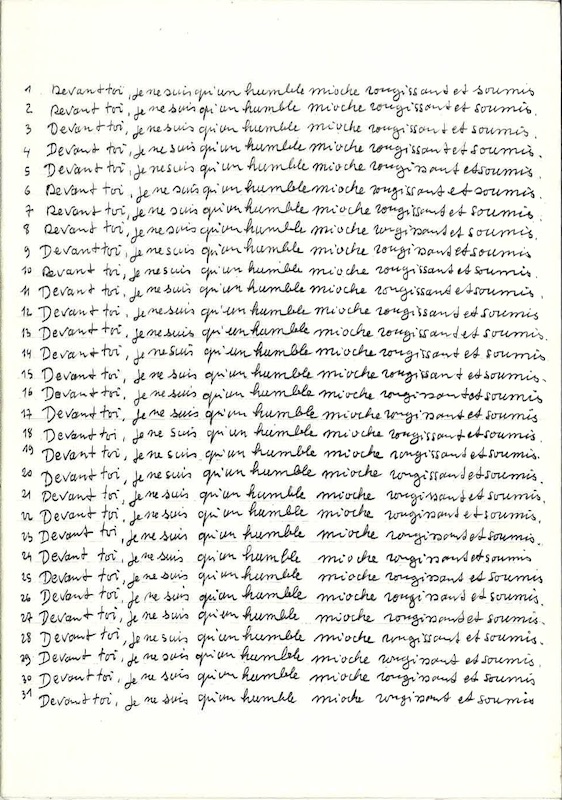 1 Devant toi, je ne suis qu'un humble mioche rougissant et soumis
2 Devant toi, je ne suis qu'un humble mioche rougissant et soumis.
3 Devant toi, je ne suis qu'un humble mioche rougissant et soumis.
4 Devant toi, je ne suis qu'un humble mioche rougissant et soumis.
5 Devant toi, je ne suis qu'un humble mioche rougissant et soumis.
6 Devant toi, je ne suis qu'un humble mioche rougissant et soumis.
7 Devant toi, je ne suis qu'un humble mioche rougissant et soumis.
8 Devant toi, je ne suis qu'un humble mioche rougissant et soumis.
9 Devant toi, je ne suis qu'un humble mioche rougissant et soumis
10 Devant toi, je ne suis qu'un humble mioche rougissant et soumis.
11 Devant toi, je ne suis qu'un humble mioche rougissant et soumis.
12 Devant toi, je ne suis qu'un humble mioche rougissant et soumis
13 Devant toi, je ne suis qu'un humble mioche rougissant et soumis.
14 Devant toi, je ne suis qu'un humble mioche rougissant et soumis
15 Devant toi, je ne suis qu'un humble mioche rougissant et soumis.
16 Devant toi, je ne suis qu'un humble mioche rougissant et soumis
17 Devant toi, je ne suis qu'un humble mioche rougissant et soumis
18 Devant toi, je ne suis qu'un humble mioche rougissant et soumis.
19 Devant toi, je ne suis qu'un humble mioche rougissant et soumis.
20 Devant toi, je ne suis qu'un humble mioche rougissant et soumis.
21 Devant toi, je ne suis qu'un humble mioche rougissant et soumis.
22 Devant toi, je ne suis qu'un humble mioche rougissant et soumis.
23 Devant toi, je ne suis qu'un humble mioche rougissant et soumis.
24 Devant toi, je ne suis qu'un humble mioche rougissant et soumis
25 Devant toi, je ne suis qu'un humble mioche rougissant et soumis
26 Devant toi, je ne suis qu'un humble mioche rougissant et soumis.
27 Devant toi, je ne suis qu'un humble mioche rougissant et soumis.
28 Devant toi, je ne suis qu'un humble mioche rougissant et soumis.
29 Devant toi, je ne suis qu'un humble mioche rougissant et soumis.
30 Devant toi, je ne suis qu'un humble mioche rougissant et soumis.
31 Devant toi, je ne suis qu'un humble mioche rougissant et soumis